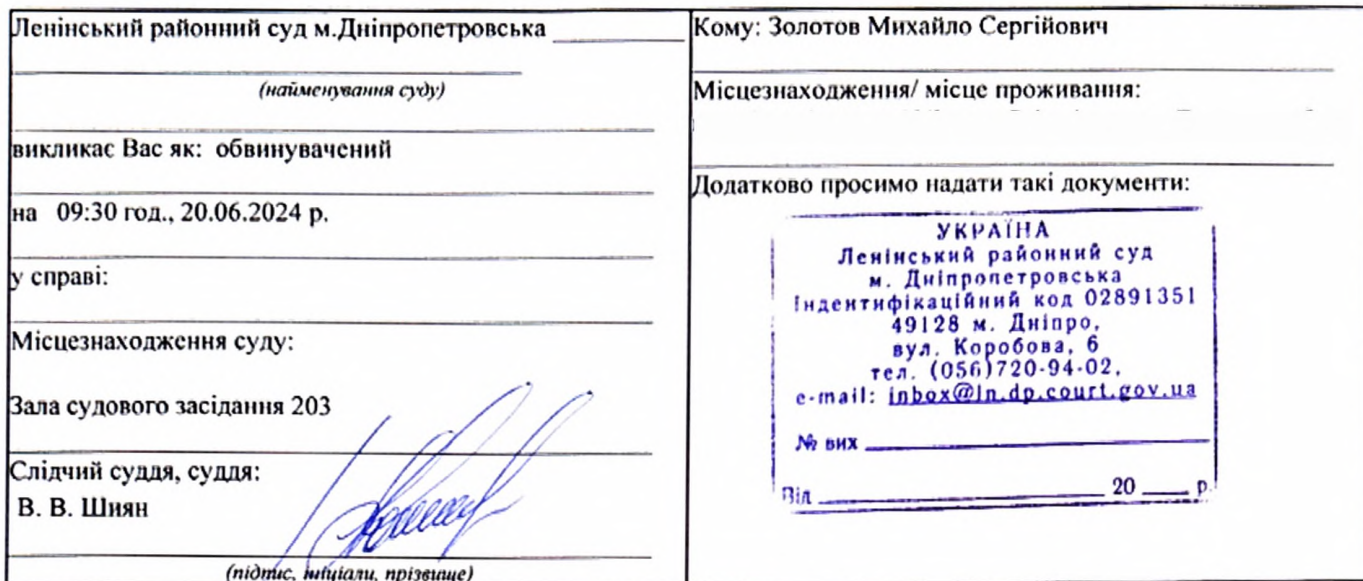 Ленінський районний суд м.Дніпропетровська
(найменування суду)
викликає Вас як: обвинувачений
на 09:30 год., 20.06.2024 р.
у справі:
Місцезнаходження суду:
Зала судового засідання 203
Слідчий суддя, суддя:
В. В. Шиян
(підпис, ініціали, прізвище)
Кому: Золотов Михайло Сергійович
Місцезнаходження/ місце проживання:
Додатково просимо надати такі документи:
УКРАЇНА
Ленінський районний суд
м. Дніпропетровська
Індентифікаційний код 02891351
49128 м. Дніпро,
вул. Коробова, 6
тел. (056)720-94-02,
e-mail: inbox@ln.dp.court.gov.ua
№ вих
Від 20 р.